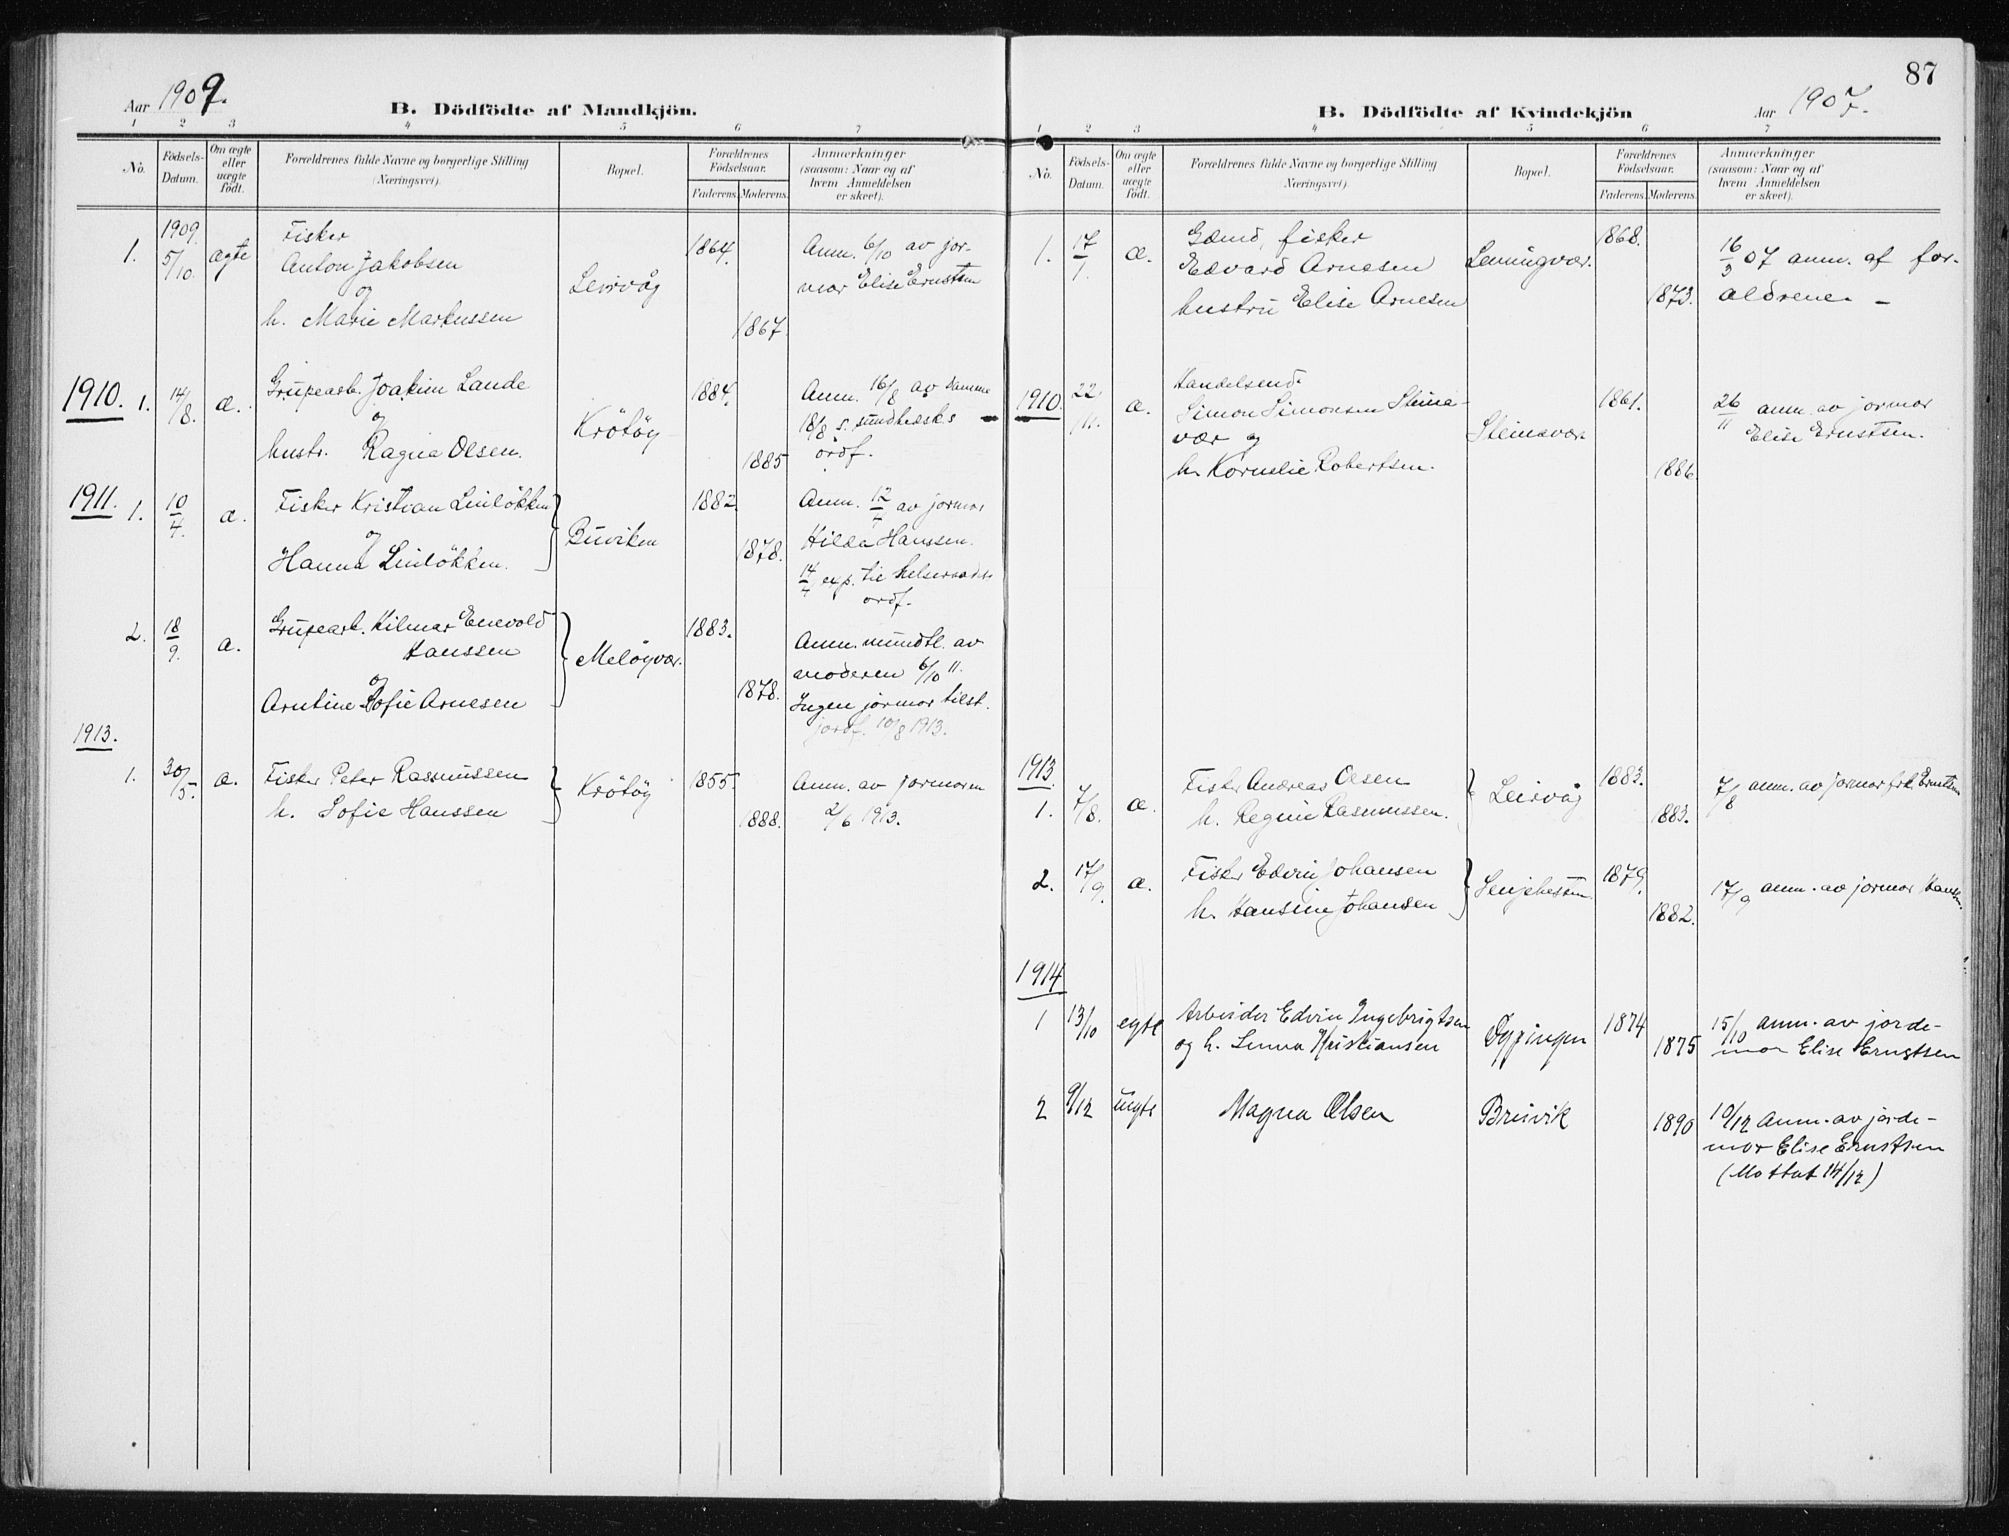 Aar 1909.
B. Dödfödte af Mandkjön.
1 2 3 4 5 6 7
No.
Födsels-Datum.
Om ægte eller uægte födt.
Forældrenes fulde Navne og borgerlige Stilling
(Næringsvei).
Bopæl.
Forældrenes Födselsaar.
Faderens. Moderens.
Anmærkninger
(saasom: Naar og af
hvem Anmeldelsen
er skeet).
1909
1. 5/10 ægte
Fisker
Anton Jakobsen
og
h. Marie Markussen
Leirvåg
1864.
1867
Anm. 6/10 av jor-
mor Elise Ernstsen
1910. 1. 14/8. æ.
Grupearb. Joakim Lande
og
hustr. Ragna Olsen.
Krötöy
1884.
1885
Anm. 16/8 av samme
18/8 s. sundhedsk.s
ordf.
1911. 1. 10/4. æ.
Fisker Kristian Linlökken
og
Hanna Linlökken.
Buviken
1882.
1878.
Anm. 12/4 av jormor
Hilda Hanssen.
14/4 exp. til helseraads
ordf.
2. 18/9. æ.
Grupearb. Hilmar Enevold
Hanssen
og
Arntine Sofie Arnesen
Melöyvær.
1883.
1878.
Anm. mundtl. av
moderen 6/10 11.
Ingen jormor tilst.
jordf. 10/8 1913.
1913.
1. 30/5. æ.
Fisker Peter Rasmussen
h. Sofie Hanssen
Krötöy
1855.
1888.
Anm. av jormoren
2/6 1913.
87
B. Dödfödte af Kvindekjön
Aar 1907.
1 2 3 4 5 6 7
No.
Födsels-Datum.
Om ægte eller uægte födt.
Forældrenes fulde Navne og borgerlige Stilling
(Næringsvei)
Bopæl.
Forældrenes Födselsaar.
Faderens. Moderens.
Anmærkninger
(saasom: Naar og af
hvem Anmeldelsen
er skeet).
1. 17/1. æ.
Gdmd, fisker
Edvard Arnesen
hustru Elise Arnesen
Lemingvær.
1868.
1873.
16/3 07 anm. af for-
ældrene. –
1910 22/11. æ.
Handelsmd.
Simon Simonsen Steina-
vær og
h. Kornelie Robertsen.
Steinavær
1861.
1886.
26/11 anm. av jormor
Elise Ernstsen.
1913
1. 7/8. æ.
Fisker Andreas Olsen
h. Regine Rasmussen.
Leirvåg
1883.
1883.
7/8 anm. av jormor frk. Ernstsen
2. 17/9. æ.
Fisker Edvin Johansen
h. Hansine Johansen
Senjehesten
1879.
1882.
17/9 anm. av jormor Hansen.
1914
1 13/10 egte
Arbeider Edvin Ingebrigtsen
og h. Kristiansen
1874
1875
15/10 anm. av jorde-
mor Elise Ernstsen
2 9/12 uegte
Magna Olsen
Bruvik
1890
10/12 Anm. av jorde-
mor Elise Ernstsen
(Mottat 14/12)